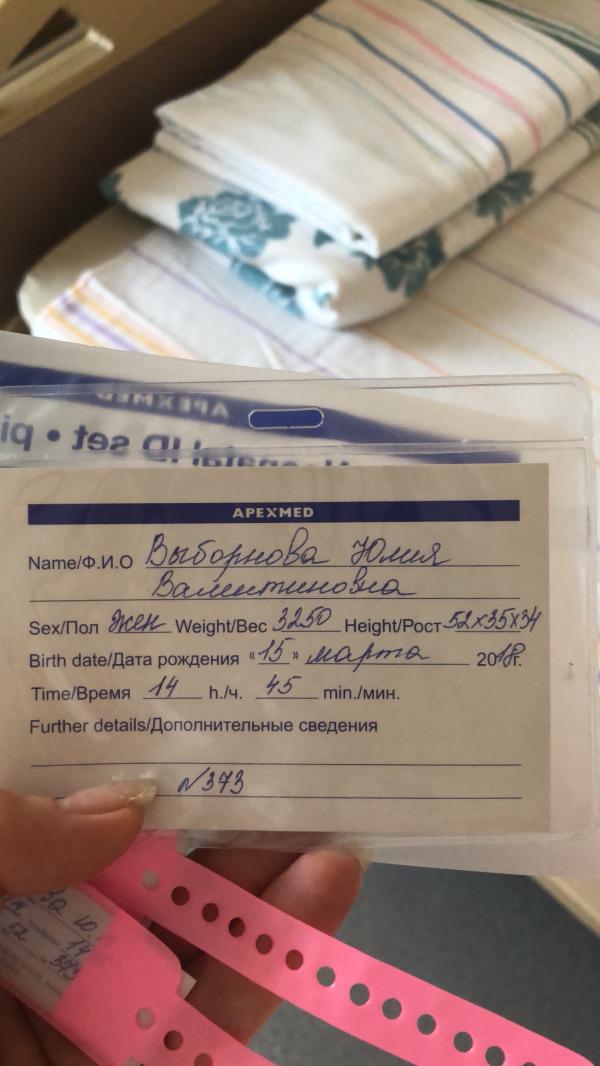 APEXMED
Neonatal ID set • pi
APEXMED
Name/Ф.И.О Выборнова Юлия
Валентиновна
Sex/Пол жен Weight/Вес 3250 Height/Рост 52х35х34
Birth date/Дата рождения «15» марта 2018г.
Time/Время 14 h./ч. 45 min./мин.
Further details/Дополнительные сведения
№373
ва Ю.
14
52
373